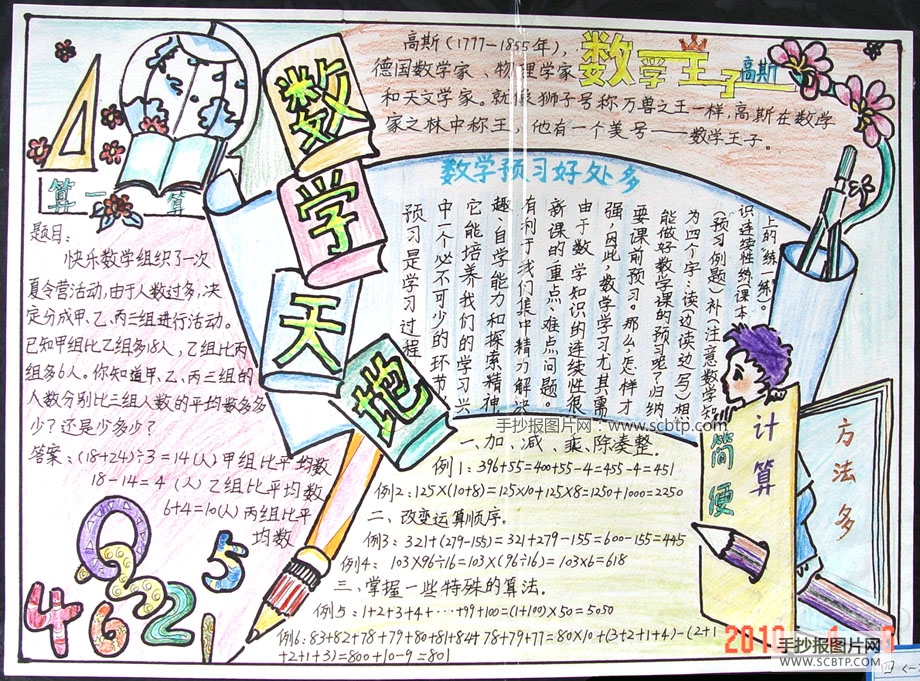 数学天地
高斯（1777-1855年），
德国数学家、物理学家
和天文学家。就像狮子号称万兽之王一样，高斯在数学
家之林中称王，他有一个美号——数学王子。
数学王子高斯
算一算
题目：
快乐数学组织了一次
夏令营活动，由于人数过多，决
定分成甲、乙、丙三组进行活动。
已知甲组比乙组多18人，乙组比丙
组多6人。你知道甲、乙、丙三组的
人数分别比三组人数的平均数多多
少？还是少多少？
答案：（18+24）÷3=14（人）甲组比平均数
18-14=4（人）乙组比平均数
6+4=10（人）丙组比平
均数
数学预习好处多
预习是学习过程
中一个必不可少的环节
它能培养我们的学习兴
趣、自学能力和探索精神
有利于我们集中精力解决
新课的重点、难点问题。
由于数学知识的连续性很
强，因此，数学学习尤其需
要课前预习。那么，怎样才
能做好数学课的预习呢？归纳
为四个字：读（边读边写）想
（预习例题）补（注意数学知
识连续性）练（课本
上的“练一练”）。
手抄报图片网——www.scbtp.com——
简便
计算
方法多
一、加、减、乘、除凑整。
例1：396+55=400+55-4=455-4=451
例2：125×(10+8)=125×10+125×8=1250+1000=2250
二、改变运算顺序。
例3：321+(279-155)=321+279-155=600-155=445
例4：103×96÷16=103×(96÷16)=103×6=618
三、掌握一些特殊的算法。
例5：1+2+3+4+…+99+100=(1+100)×50=5050
例6：83+82+78+79+80+81+84+78+79+77=80×10+(3+2+1+4)-(2+1
+2+1+3)=800+10-9=801
4 6 0 3 2 1 5
手抄报图片网
WWW.SCBTP.COM